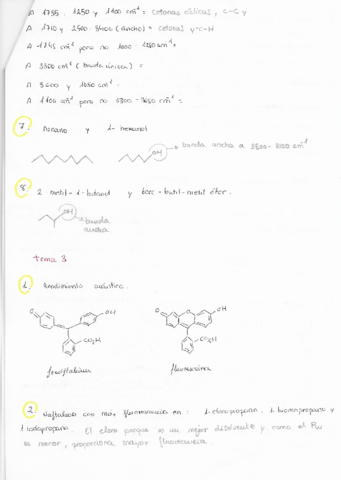 A 1735, 1250 y 1100 cm⁻¹ = cetonas cíclicas, C-C y
A 1710 y 2500-3400 (ancho) = cetonas y C-H
A 1745 cm⁻¹ pero no 1000-1250 cm⁻¹ =
A 3300 cm⁻¹ (banda única) =
A 3600 y 1050 cm⁻¹
A 1100 cm⁻¹ pero no 3300-3650 cm⁻¹ =
7. Nonano y 1-hexanol
OH
banda ancha a
8. 2 metil-1-butanol y terc-butil-metil éter.
OH
banda
ancha
tema 3
1. Rendimiento cuántico.
O
OH
CO₂H
fenolftaleína
O
O
OH
CO₂H
fluoresceína
2. Naftaleno con más fluorescencia en: 1-cloropropano, 1-bromopropano y
1-iodopropano. El cloro porque es un mejor disolvente y como el
es menor, proporciona mayor fluorescencia.